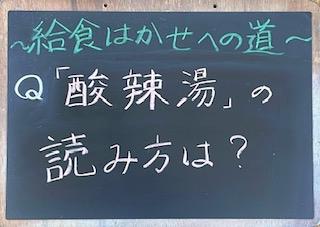 ~給食はかせへの道~
Q「酸辣湯」の
読み方は?